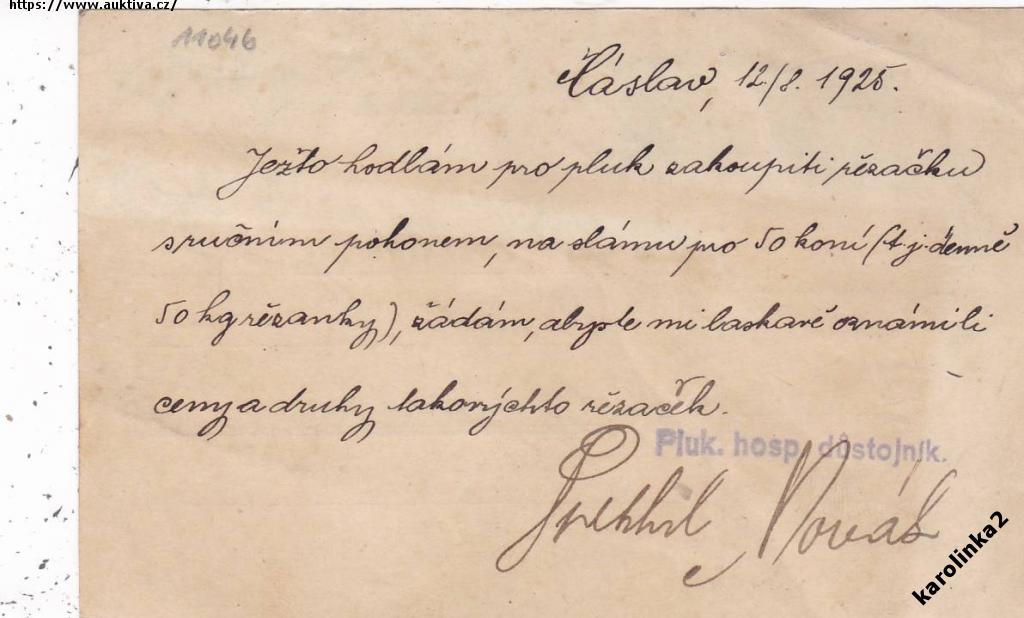 https://www.auktiva.cz/
11046
Čáslav, 12./8. 1925.
Ježto hodlám pro pluk zakoupiti řezačku
s ručním pohonem, na slámu pro 50 koní (t.j. denně
50 kg řezanky), žádám, abyste mi laskavě oznámili
ceny a druhy takovýchto řezaček.
Pluk. hosp. důstojník.
Novák
karolinka2